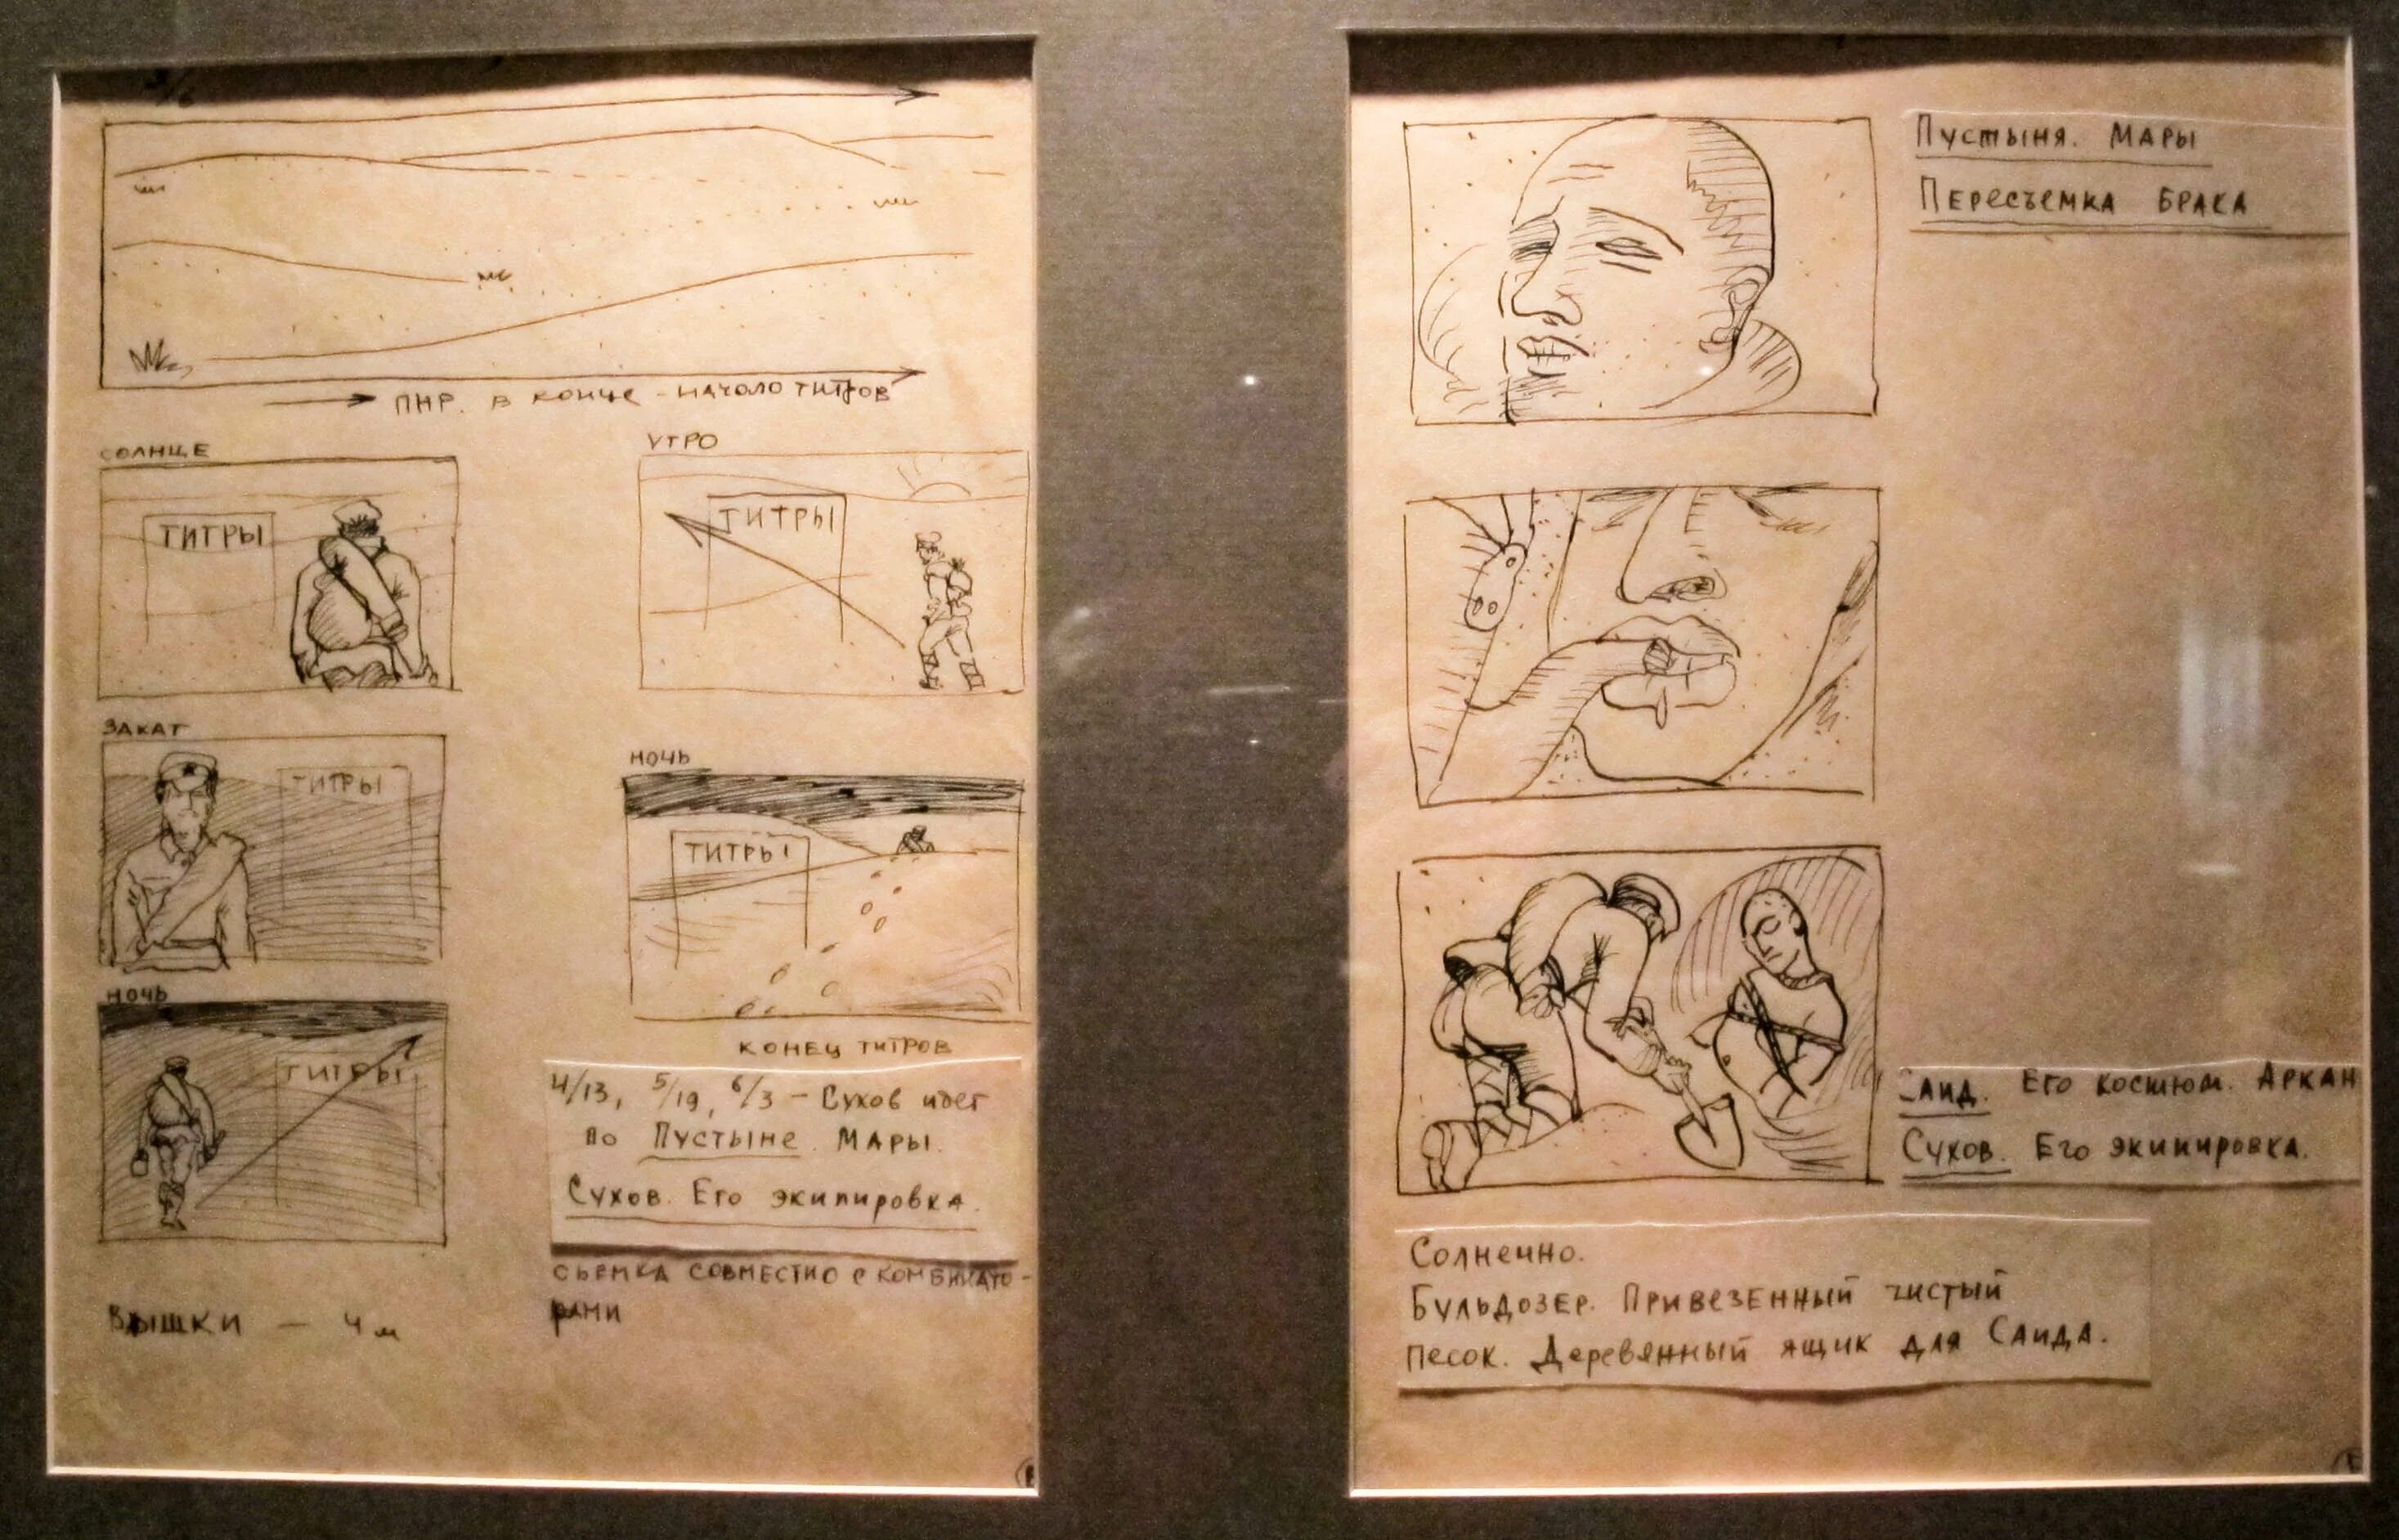 3/6
ПНР. В КОНЦЕ - НАЧОЛО ТИТРОВ
СОЛНЦЕ
ТИТРЫ
УТРО
ТИТРЫ
ЗАКАТ
ТИТРЫ
НОЧЬ
ТИТРЫ
НОЧЬ
ТИТРЫ
КОНЕЦ ТИТРОВ
4/13, 5/19, 6/3 – Сухов идет
по Пустыне. Мары.
Сухов. Его экипировка.
СЬЕМКА СОВМЕСТНО С КОМБИНАТО-
РАМИ
ВЫШКИ — 4 м
Пустыня. Мары
Пересъемка брака
Саид. Его костюм. Аркан
Сухов. Его экипировка.
Солнечно.
Бульдозер. Привезенный чистый
песок. Деревянный ящик для Саида.